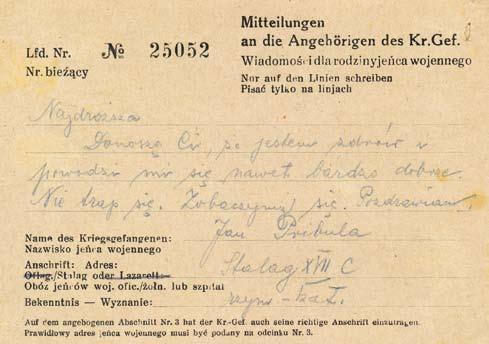 Mitteilungen
an die Angehörigen des Kr.Gef.
Lfd. Nr. № 25052
Nr. bieżący
Wiadomości dla rodziny jeńca wojennego
Nor auf den Linien schreiben
Pisać tylko na linjach
Najdroższa
Donoszę Ci, że jestem zdrów i
powodzi mi się nawet bardzo dobrze.
Nie trap się. Zobaczymy się. Pozdrawiam.
Jan Pribula
Name des Kriegsgefangenen:
Nazwisko jeńca wojennego
Anschrift: Adres:
Stalag XVIII C
Oflag./Stalag oder Lazarett:
Obóz jeńców woj. ofic./żołn. lub szpital
Bekenntnis — Wyznanie: rzym-kat.
Auf dem angebogenen Abschnitt Nr. 3 hat der Kr-Gef. auch seine richtige Anschrift einzutragen.
Prawidłowy adres jeńca wojennego musi być podany na odcinku Nr. 3.